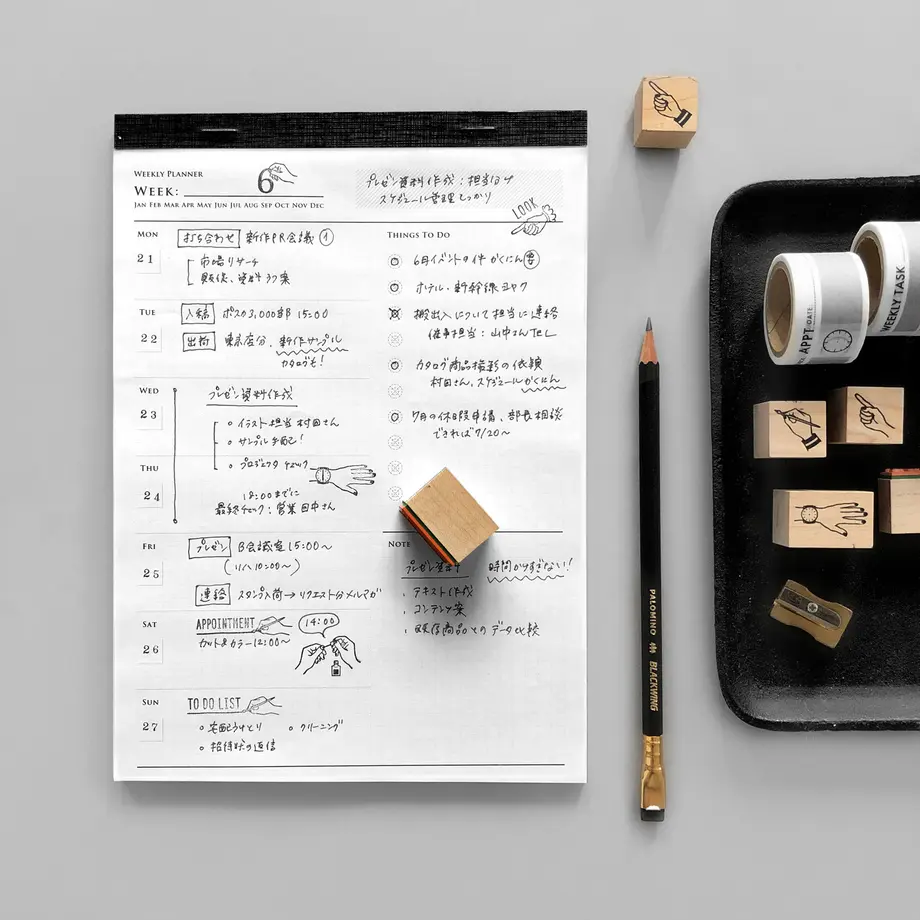 WEEKLY PLANNER
WEEK:
6
JAN FEB MAR APR MAY JUN JUL AUG SEP OCT NOV DEC
プレゼン資料作成:担当日4
スケジュール管理しっかり
LOOK
MON
21
打ち合わせ 新作PR会議 ①
市場リサーチ
TUE
22
入稿 ポスク3,000部 15:00
出荷 東京店分、新作サンプル
カタログも!
WED
23
プレゼン資料作成
イラスト担当 村田さん
サンプル手配!
プロジェクタ チェック
THU
24
18:00までに
最終チェック:営業 田中さん
FRI
25
プレゼン B会議室 15:00〜
(リハ 10:00〜)
連絡 スタンプ入荷→リクエスト分メルマガ
SAT
26
APPOINTMENT
14:00
カット&カラー12:00〜
SUN
27
TO DO LIST
宅配うけとり クリーニング
招待状の返信
THINGS TO DO
6月イベントの件 かくにん
ホテル・新幹線ヨヤク
搬出入について担当に連絡
催事担当:山中さんTEL
カタログ商品撮影の依頼
村田さん、スケジュールかくにん
7月の休日段申請、部長相談
できれば7/20〜
NOTE
時間かけすぎない!
テキスト作成
コンテンツ案
既存商品とのデータ比較
PALOMINO BLACKWING
APPT DATE
WEEKLY TASK